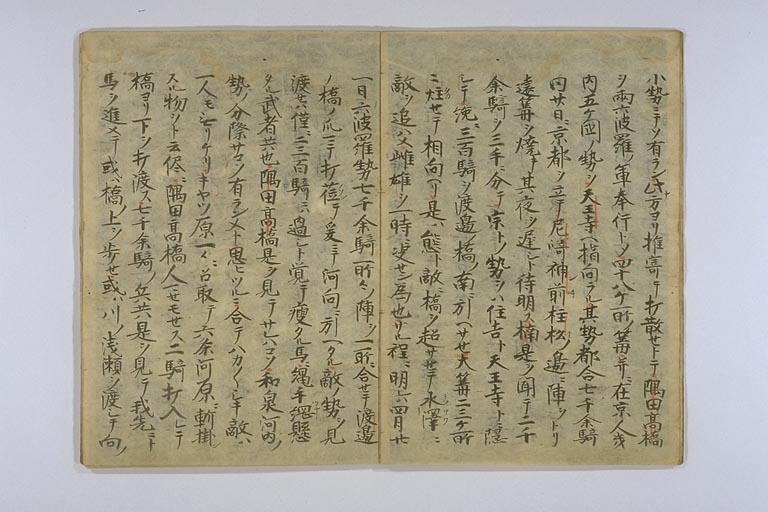 小勢ニテソ有ラン此方ヨリ推寄テ打散セトテ隅田高橋
ヲ両六波羅ノ軍奉行トシ四十八ケ所篝并ニ在京人畿
内五ケ國ノ勢ヲ天王寺ヘ指向ラル其勢都合七千余騎
同廿日京都ヲ立テ尼崎神前柱松ノ邊ニ陣ヲトリ
遠篝ヲ焼テ其夜ヲ遅シト待明ス楠是ヲ聞テ二千
余騎ヲ三手ニ分テ宗トノ勢ヲハ住吉天王寺ニ隠
シテ纔ニ三百騎ヲ渡邊ノ橋ノ南ニ引ヘサセ大篝二三ケ所
ニ炷セテ相向ヘリ是ハ態ト敵ニ橋ヲ超サセテ水澤ニ
敵ヲ追ハメ雌雄ヲ一時ニ決セン為也サル程ニ明レハ四月廿
一日六波羅勢七千余騎所々ノ陣ヲ一所ニ合セテ渡邊
ノ橋ノ爪ニテ打莅テ爰ニテ河向ニ引ヘタル敵ノ勢ヲ見
渡セハ僅ニ二三百騎ニハ過シト覚テ痩タル馬ニ縄手綱懸
タル武者共也隅田高橋是ヲ見テサレハコソ和泉河内ノ
勢ノ分際サコソ有ラシメト思ヒツルニ合テハカ〳〵シキ敵ハ
一人モ無リケリキヤツ原一々ニ召取テ六条河原ニ斬掛
スル物ソト云侭ニ隅田高橋人ニモセモセス二騎打入シテ
橋ヨリ下ヲ打渡ス七千余騎ノ兵共是ヲ見テ我先ニト
馬ヲ進メテ或ハ橋上ヲ歩セ或ハ川ノ浅瀬ヲ渡シテ向ノ